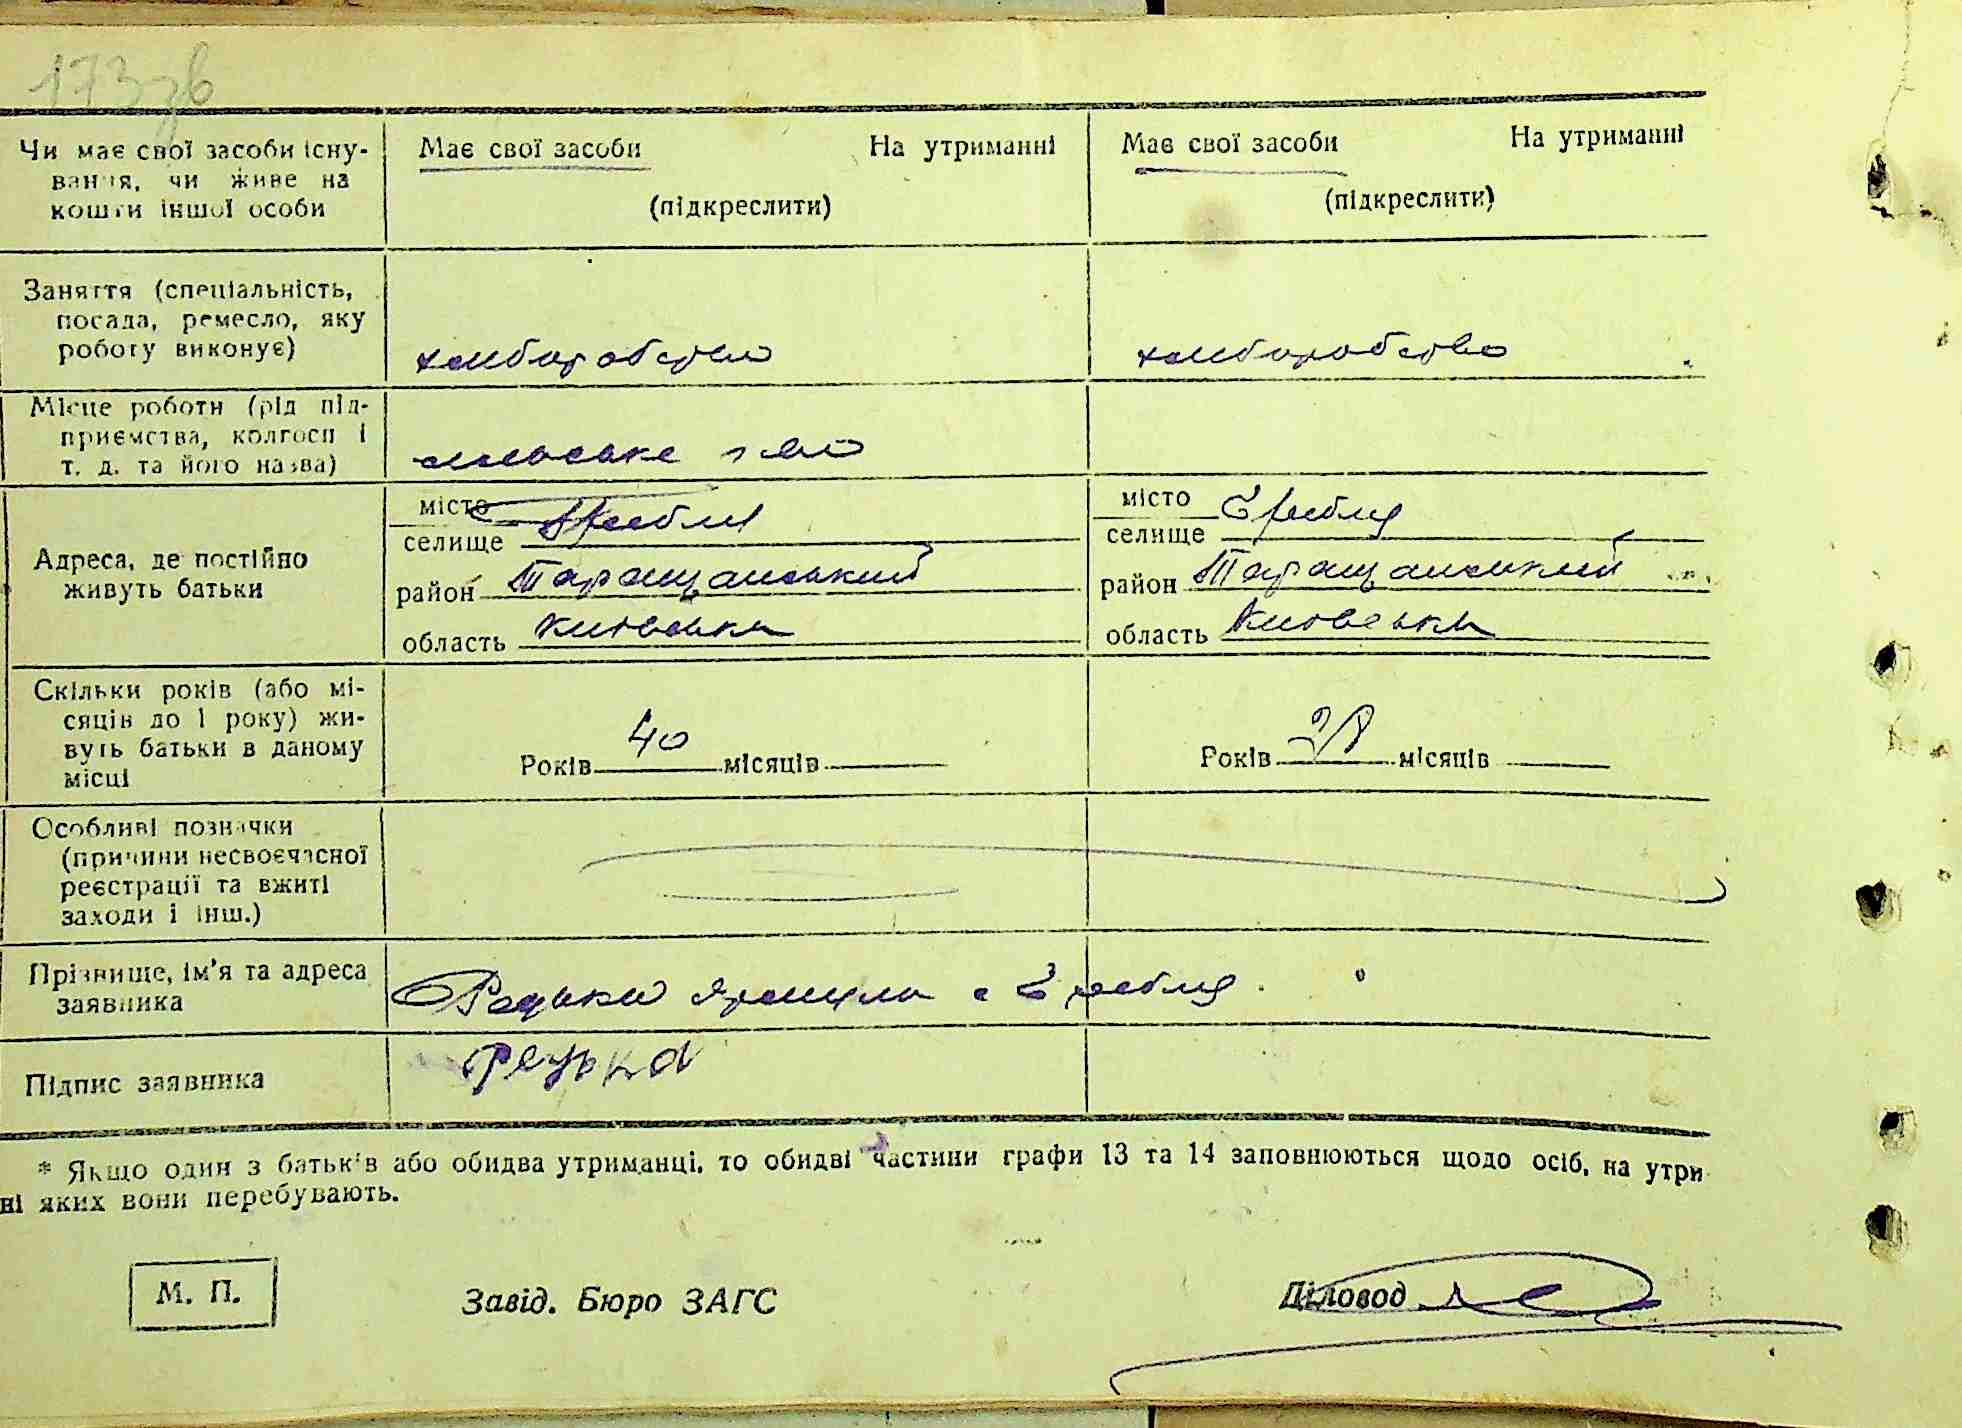 173зв
Чи має свої засоби існу-
вання, чи живе на
кошти іншої особи
Має свої засоби На утриманні
(підкреслити)
Має свої засоби На утриманні
(підкреслити)
Заняття (спеціальність,
посада, ремесло, яку
роботу виконує)
хліборобство
хліборобство
Місце роботи (рід під-
приємства, колгосп і
т. д. та його назва)
сільське г-во
Адреса, де постійно
живуть батьки
місто
селище Гребля
район Таращанський
область Київська
місто Гребля
селище
район Таращанський
область Київська
Скільки років (або мі-
сяців до 1 року) жи-
вуть батьки в даному
місці
Років 40 місяців
Років 38 місяців
Особливі позначки
(причини несвоєчасної
реєстрації та вжиті
заходи і інш.)
Прізвище, ім'я та адреса
заявника
Редька с Гребля.
Підпис заявника
Редька
* Якщо один з батьків або обидва утриманці, то обидві частини графи 13 та 14 заповнюються щодо осіб, на утри
ні яких вони перебувають.
М. П.
Завід. Бюро ЗАГС
Діловод